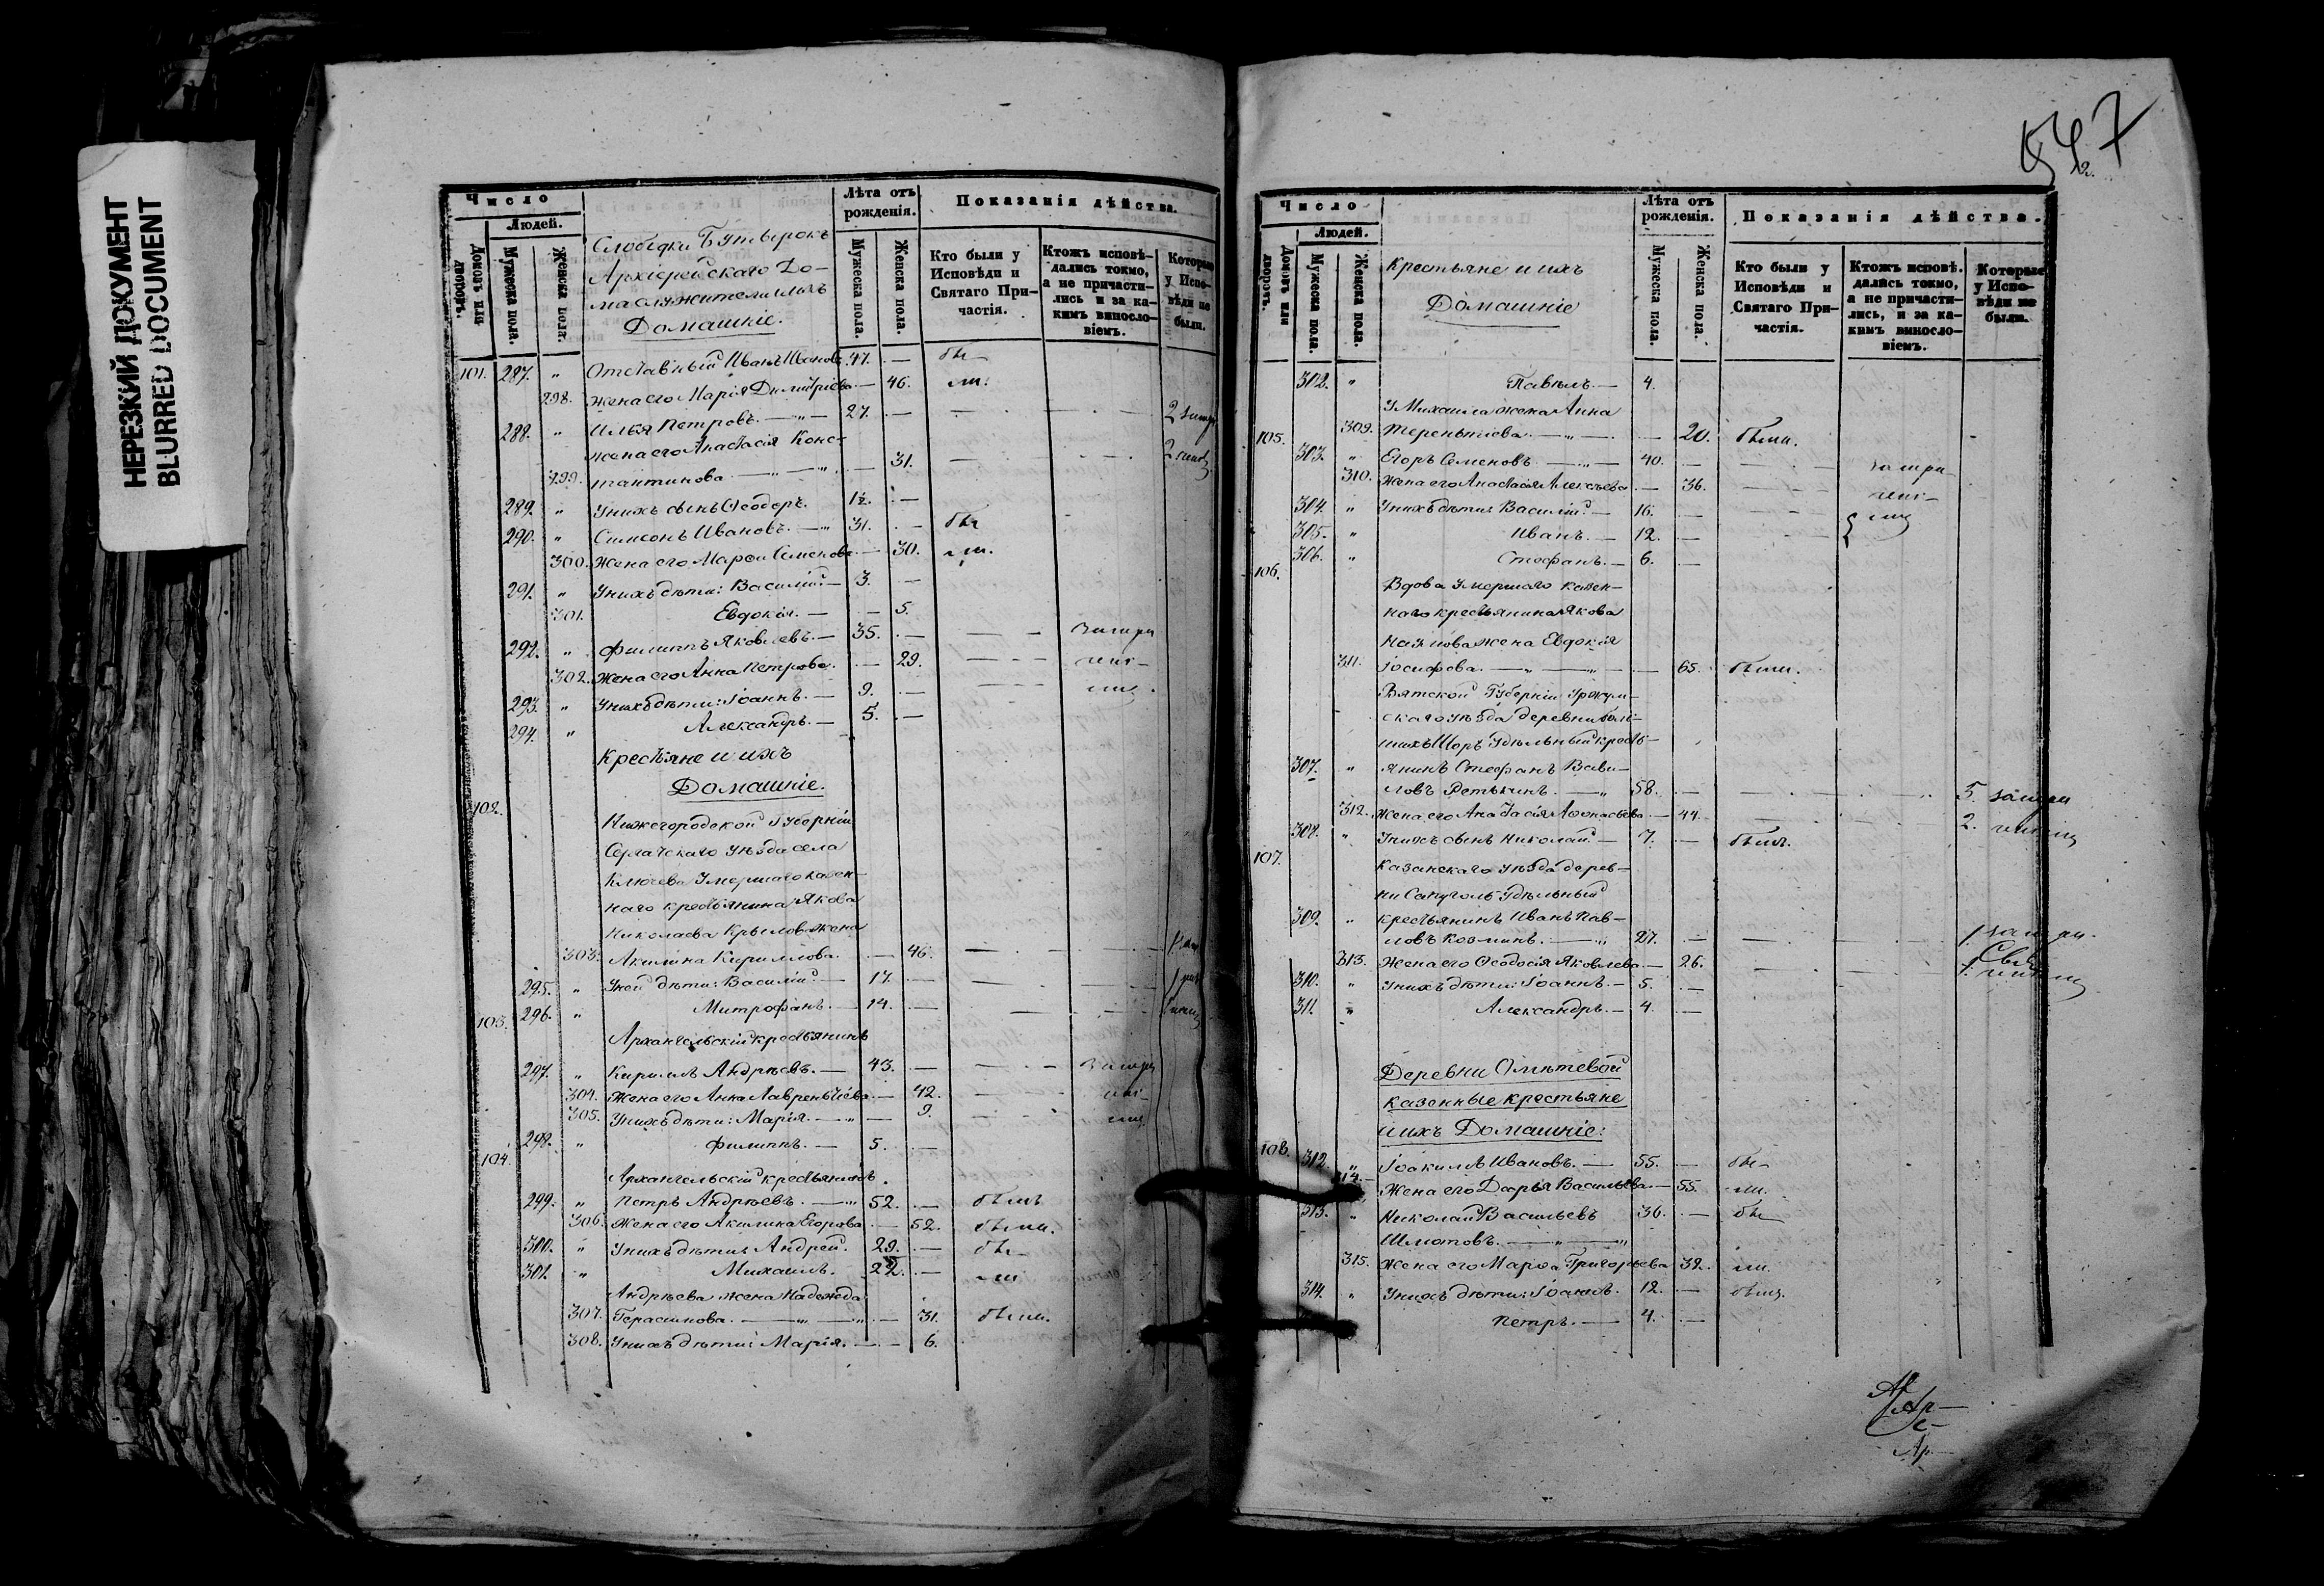 НЕРЕЗКИЙ ДОКУМЕНТ
BLURRED DOCUMENT
Число
Людей.
Домовъ или дворовъ.
Мужеска пола.
Женска пола.
Слободки Бутырокъ
Архіерейскаго До-
маслужители и ихъ
Домашніе.
Лѣта отъ рожденія.
Мужеска пола.
Женска пола.
Показанія дѣйства.
Кто были у Исповѣди и Святаго При-
частія.
Ктожъ исповѣ-
дались токмо,
а не причасти-
лись и за ка-
кимъ винosло-
віемъ.
Которые
у Испо-
вѣди не
были.
101. 287. " Отставный Иванъ Ивановъ 47. — бы-
298. Жена его Марія Димитріева — 46. ли.
288. " Илья Петровъ. — " — 27. —
Жена его Анастасія Конс-
299. тантинова — " — " — 31.
289. " У нихъ сынъ Ѳеодоръ. 1½. —
290. " Симеонъ Ивановъ. — " 31. — бы
300. Жена его Марѳа Семенова — 30. ли.
291. " У нихъ дѣти: Василій. — 3. —
301. Евдокія. — — 5.
292. " Филиппъ Яковлевъ. — 35. —
302. Жена его Анна Петрова. — 29.
293. " У нихъ дѣти: Іоаннъ. — 9. —
294. " Александръ. — 5. —
Крестьяне и ихъ
Домашніе.
102. Нижегородской Губерніи
Сергачскаго уѣзда села
Ключева умершаго казен-
наго крестьянина Якова
Николаева Крылова жена
303. Акилина Кириллова. — 46.
295. " У ней дѣти: Василій. — 17. —
296. " Митрофанъ. — 14. —
103. Архангельскій крестьянинъ
297. " Кириллъ Андреевъ. — 43. —
304. Жена его Анна Лаврентіева. — 42.
305. У нихъ дѣти: Марія. — " — 9.
298. " Филиппъ. — 5. —
104. Архангельскій крестьянинъ
299. " Петръ Андреевъ. — " 52. — былъ
306. Жена его Акилина Егорова — 52. были.
300. " У нихъ дѣти: Андрей. 29. — бы-
301. " Михаилъ. 22. — ли
Андреева жена Надежда
307. Герасимова. — " — " — 31. были.
308. У нихъ дѣти: Марія. — — 6.
547
Число
Людей.
Домовъ или дворовъ.
Мужеска пола.
Женска пола.
Крестьяне и ихъ
Домашніе
Лѣта отъ рожденія.
Мужеска пола.
Женска пола.
Показанія дѣйства.
Кто были у Исповѣди и Святаго При-
частія.
Ктожъ исповѣ-
дались токмо,
а не причасти-
лись, и за ка-
кимъ винoсло-
віемъ.
Которые
у Испо-
вѣди не
были.
302. " Павелъ. — 4.
У Михаила жена Анна
309. Терентіева. — " — — 20. были.
105. 303. " Егоръ Семеновъ. — " — 40. —
310. Жена его Анастасія Алексѣева — 36.
304. " У нихъ дѣти: Василій. — 16. —
305. " Иванъ. — 12. —
306. " Стефанъ. — 6. —
106. Вдова умершаго казен-
наго крестьянина Якова
Наумова жена Евдокія
311. Іосифова. — " — " — 65. были.
Вятской Губерніи Уржум-
скаго уѣзда деревни Боль-
шихъ Шоръ удѣльный кресть-
307. " янинъ Стефанъ Вави-
ловъ Ретькинъ. — " 58. —
312. Жена его Анастасія Аѳонасьева — 44.
308. " У нихъ сынъ Николай. — 7. — былъ.
107. Казанскаго уѣзда дерев-
ни Сапуголь удѣльный
309. " крестьянинъ Иванъ Пав-
ловъ Козминъ. — " 27. —
313. Жена его Ѳеодосія Яковлева — 26.
310. " У нихъ дѣти: Іоаннъ. — 5. —
311. " Александръ. — 4. —
Деревни Ометевой
казенные крестьяне
и ихъ Домашніе:
108. 312. " Іоакимъ Ивановъ. — 55. — бы-
314. Жена его Дарья Васильева. — 55. ли.
313. " Николай Васильевъ 36. — бы
Шмотовъ. — " — "
315. Жена его Марѳа Григорьева 32. ли.
314. " У нихъ дѣти: Іоаннъ. 12. — былъ.
Петръ. — 4. —